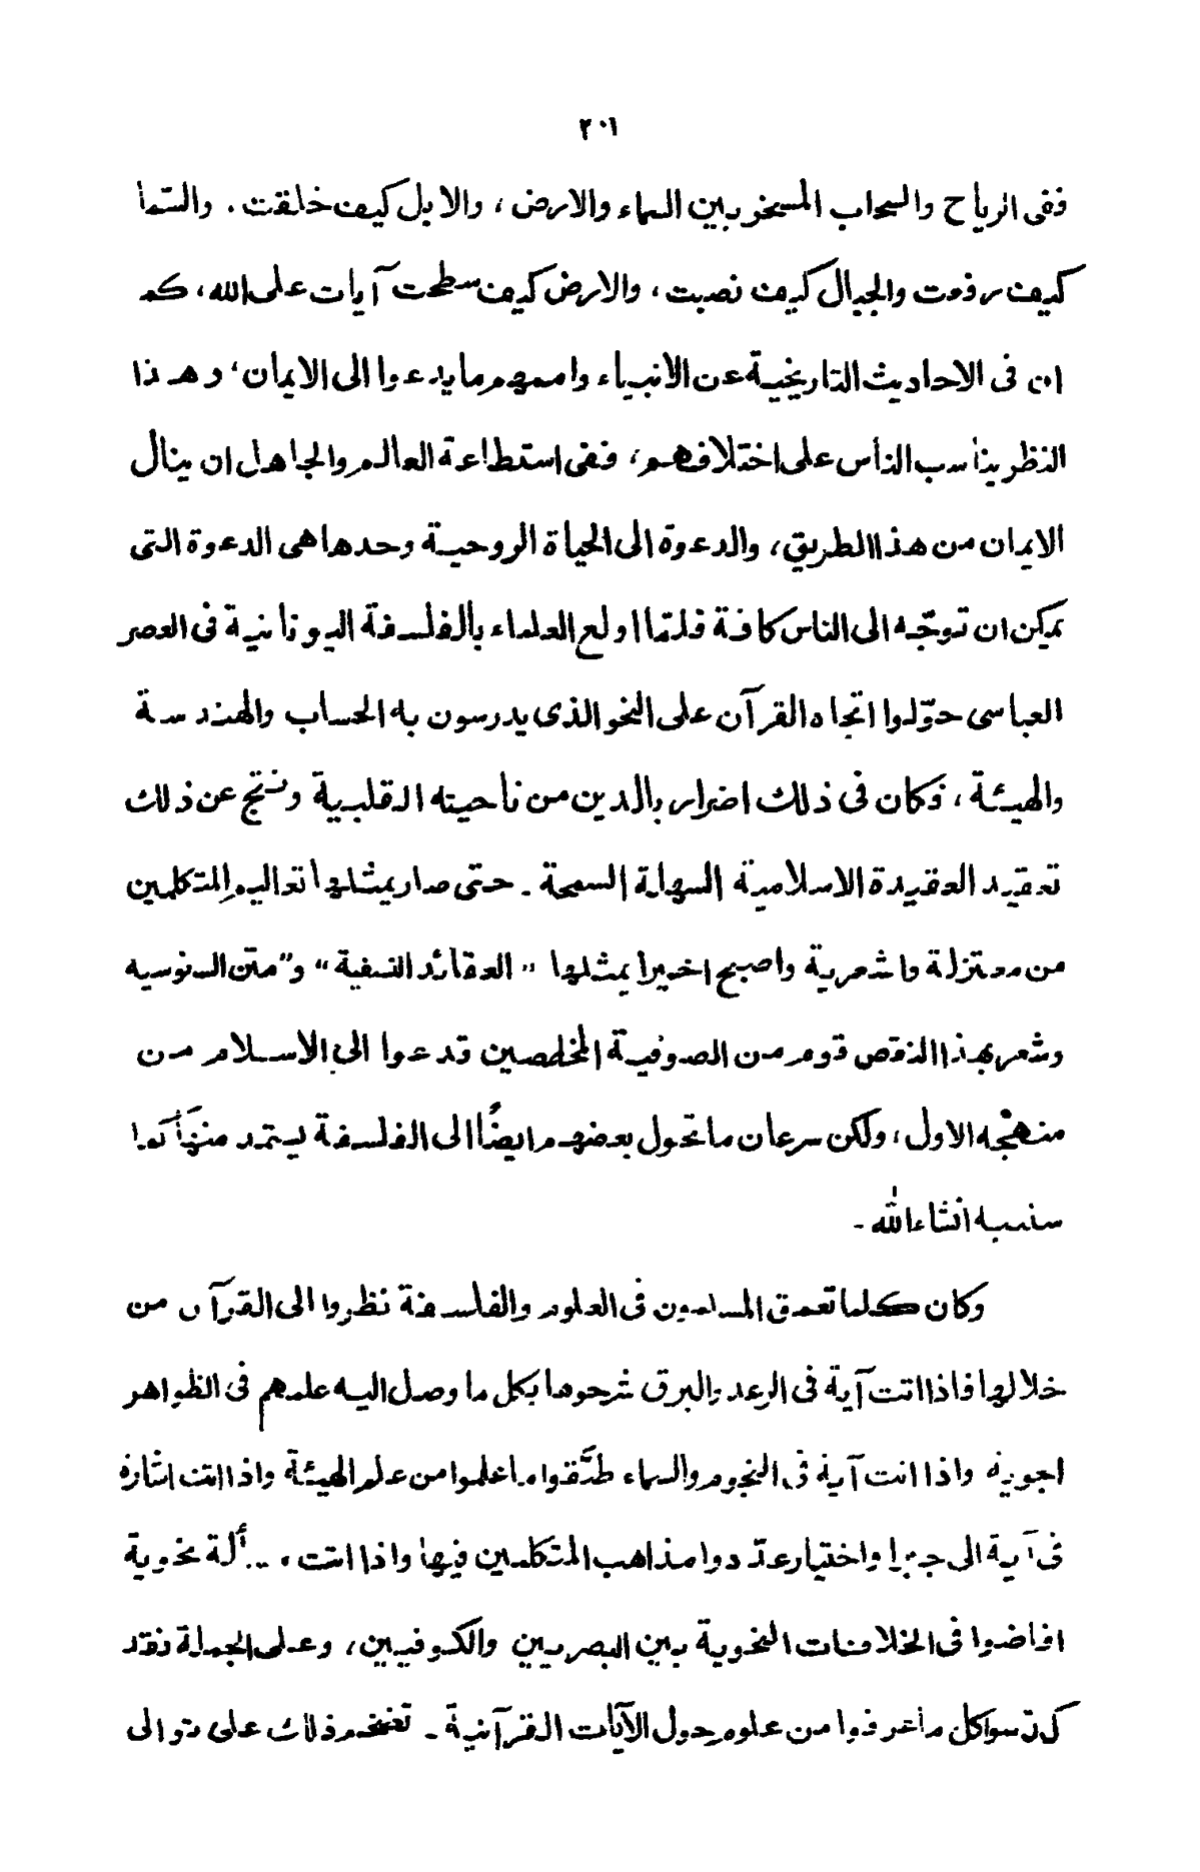 ٢٠١
ففى الرياح والسحاب المسخر بين السماء والارض ، والابل كيف خلقت . والسّما
كيف رفعت والجبال كيف نصبت ، والارض كيف سطحت آيات على الله ، كم
ان فى الاحاديث التاريخية عن الأنبياء واممهم ما يدعوا الى الايمان ، وهذا
النظر يناسب الناس على اختلافهم ، ففى استطاعة العالم والجاهل ان ينال
الايمان من هذا الطريق ، والدعوة الى الحياة الروحية وحدها هى الدعوة التى
يمكن ان توجّه الى الناس كافة فلمّا اولع العلماء بالفلسفة اليونانية فى العصر
العباسى حوّلوا اتجاه القرآن على النحو الذى يدرسون به الحساب والهندسة
والهيئة ، فكان فى ذلك اضرار بالدين من ناحيته القلبية ونتج عن ذلك
تعقيد العقيدة الاسلامية السهلة السمحة ـ حتى صار يمثلها تعاليم المتكلمين
من معتزلة واشعرية واصبح اخيرا يمثلها " العقائد النسفية " و" متن السنوسيه
وشعر بهذا النقص قوم من الصوفية المخلصين قدعوا الى الاسلام من
منهجه الاول ، ولكن سرعان ما تحول بعضهم ايضًا الى الفلسفة يستمد منها كما
سنبينه انشاء الله ـ
وكان كلما تعمق المسلمون فى العلوم والفلسفة نظروا الى القرآن من
خلالها فاذا اتت آية فى الرعد والبرق شرحوها بكل ما وصل اليه علمهم فى الظواهر
الجوية واذا اتت آية فى النجوم والسماء طبّقوا ما علموا من علم الهيئة واذا اتت اشارة
فى آية الى جبر واختيار عدّدوا مذاهب المتكلمين فيها واذا اتت مسألة نحوية
افاضوا فى الخلافات النحوية بين البصريين والكوفيين ، وعلى الجملة فقد
كدّسوا كل ما عرفوا من علوم حول الآيات القرآنية ـ تضخم ذلك على توالى